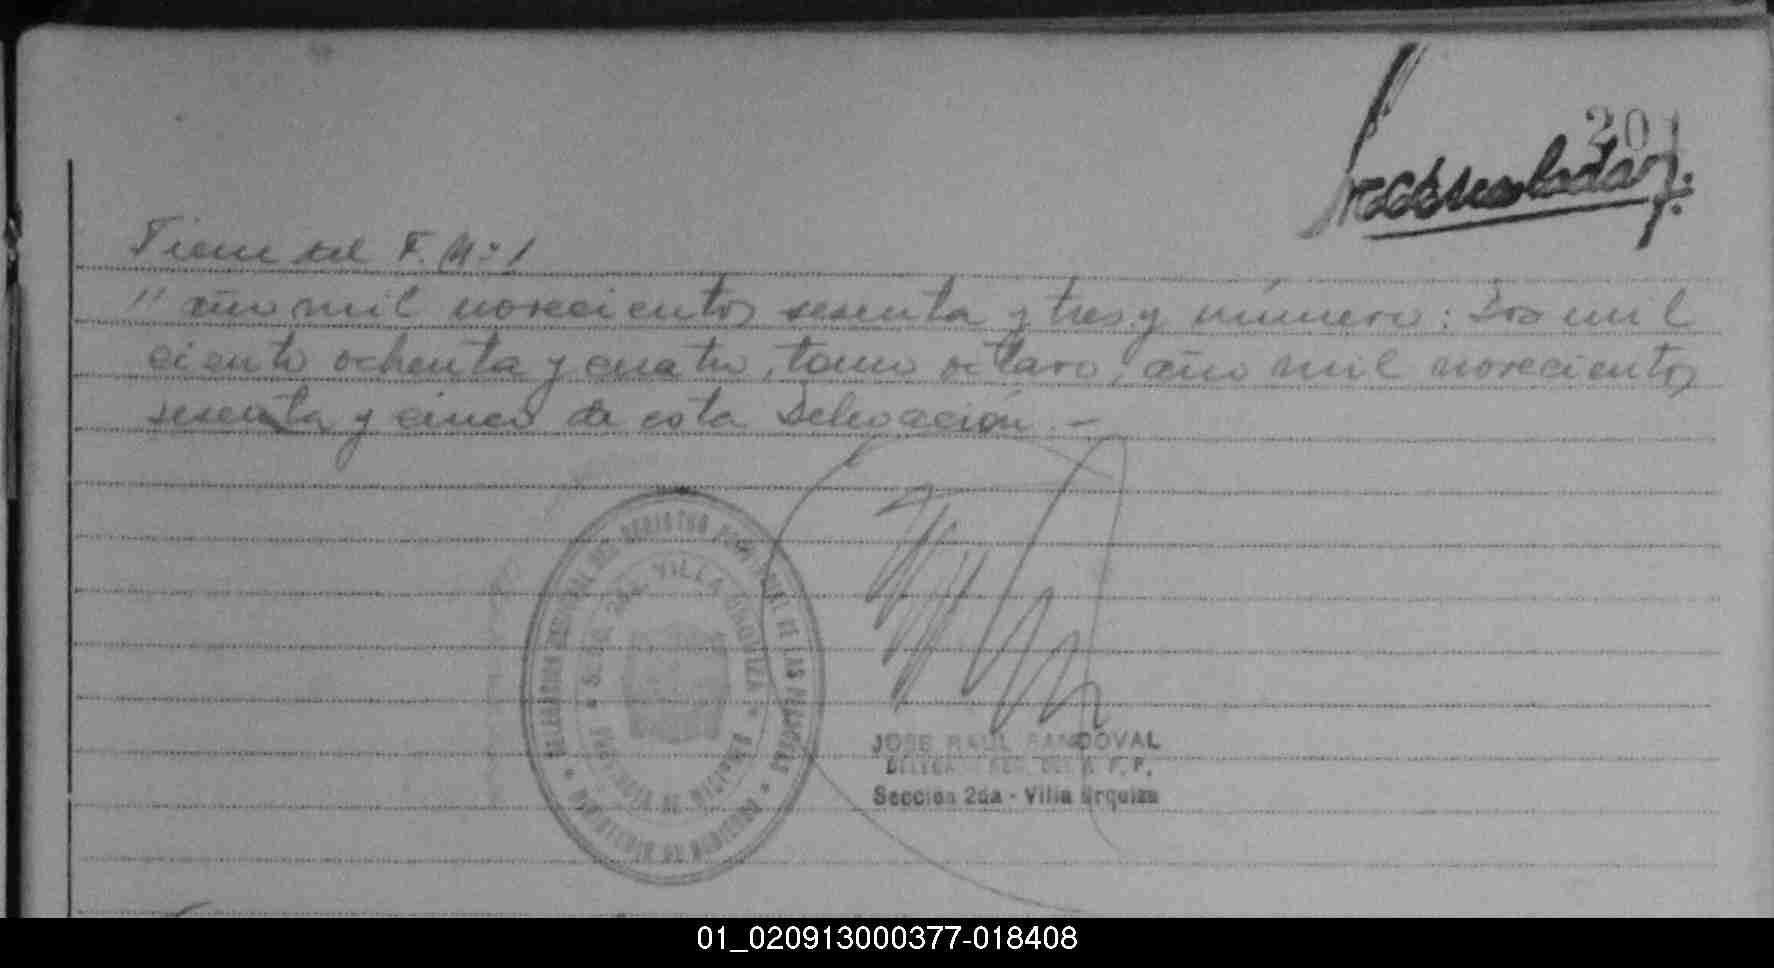 201
Viene del F. Nº 1
" año mil novecientos sesenta y tres y número: Dos mil
ciento ochenta y cuatro, tomo octavo, año mil novecientos
sesenta y cinco de esta Delegación.-
REGISTRO DE LAS PERSONAS
VILLA URQUIZA
PROVINCIA DE MISIONES
JOSE RAUL SANDOVAL
Sección 2da - Villa Urquiza
01_020913000377-018408